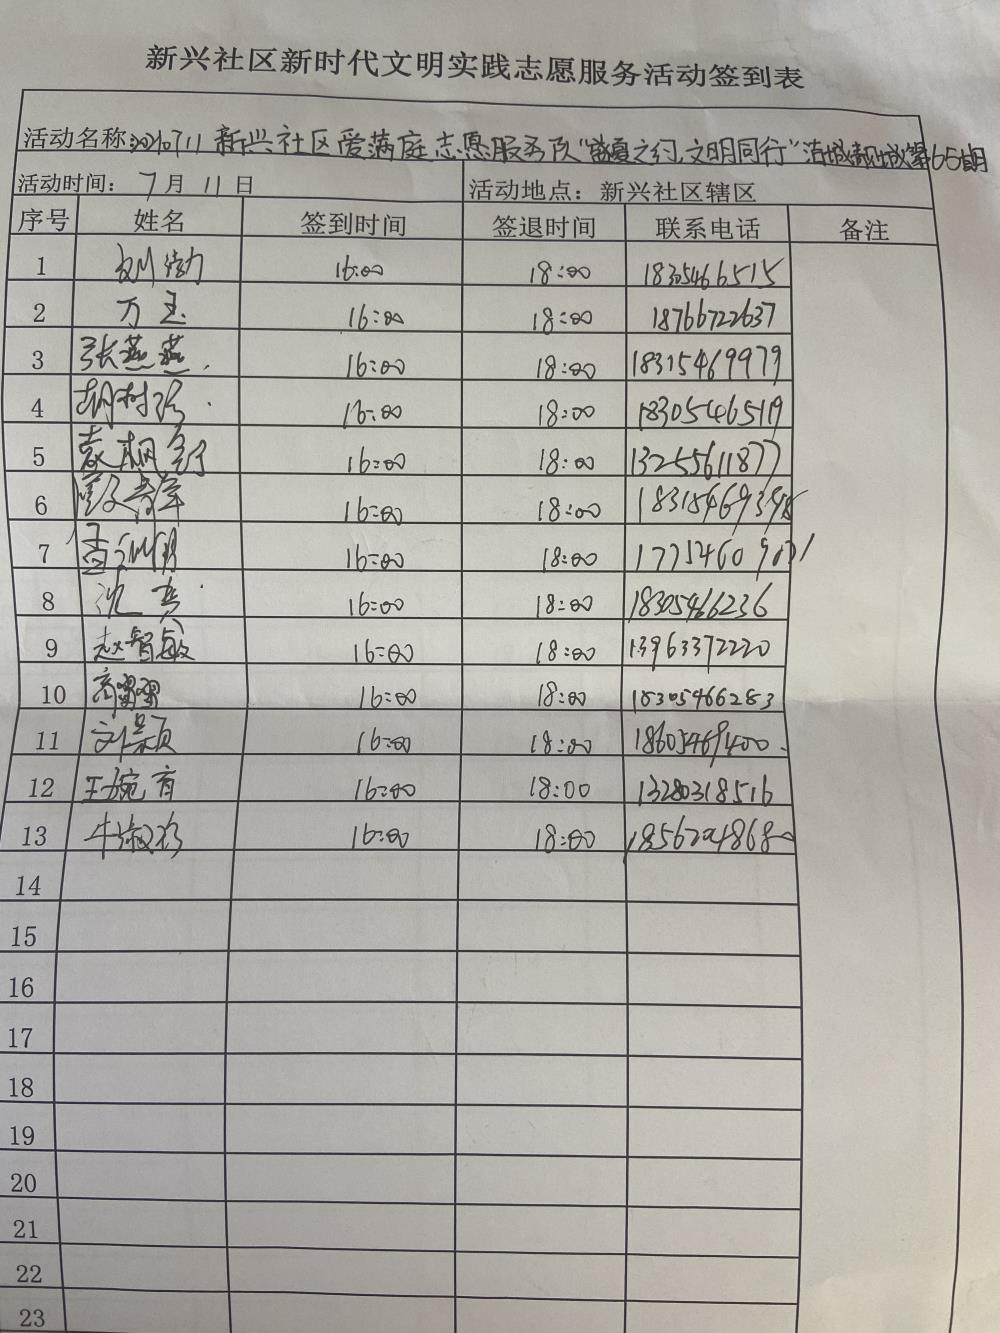 新兴社区新时代文明实践志愿服务活动签到表
活动名称: 新兴社区爱满庭志愿服务队"盛夏之约,文明同行"清城靓城第65期
活动时间: 7月11日 活动地点: 新兴社区辖区
序号 姓名 签到时间 签退时间 联系电话 备注
1 16:00 18:00 18305466515
2 万玉 16:00 18:00 18766722637
3 张燕燕 16:00 18:00 18315469979
4 胡树珍 16:00 18:00 1830546519
5 袁桐 16:00 18:00 13255611877
6 16:00 18:00
7 孟 16:00 18:00
8 沈 16:00 18:00 18305466236
9 赵智敏 16:00 18:00 13963372220
10 16:00 18:00 18305466283
11 16:00 18:00 18605469400
12 王婉育 16:00 18:00 13280318516
13 牛淑珍 16:00 18:00
14
15
16
17
18
19
20
21
22
23